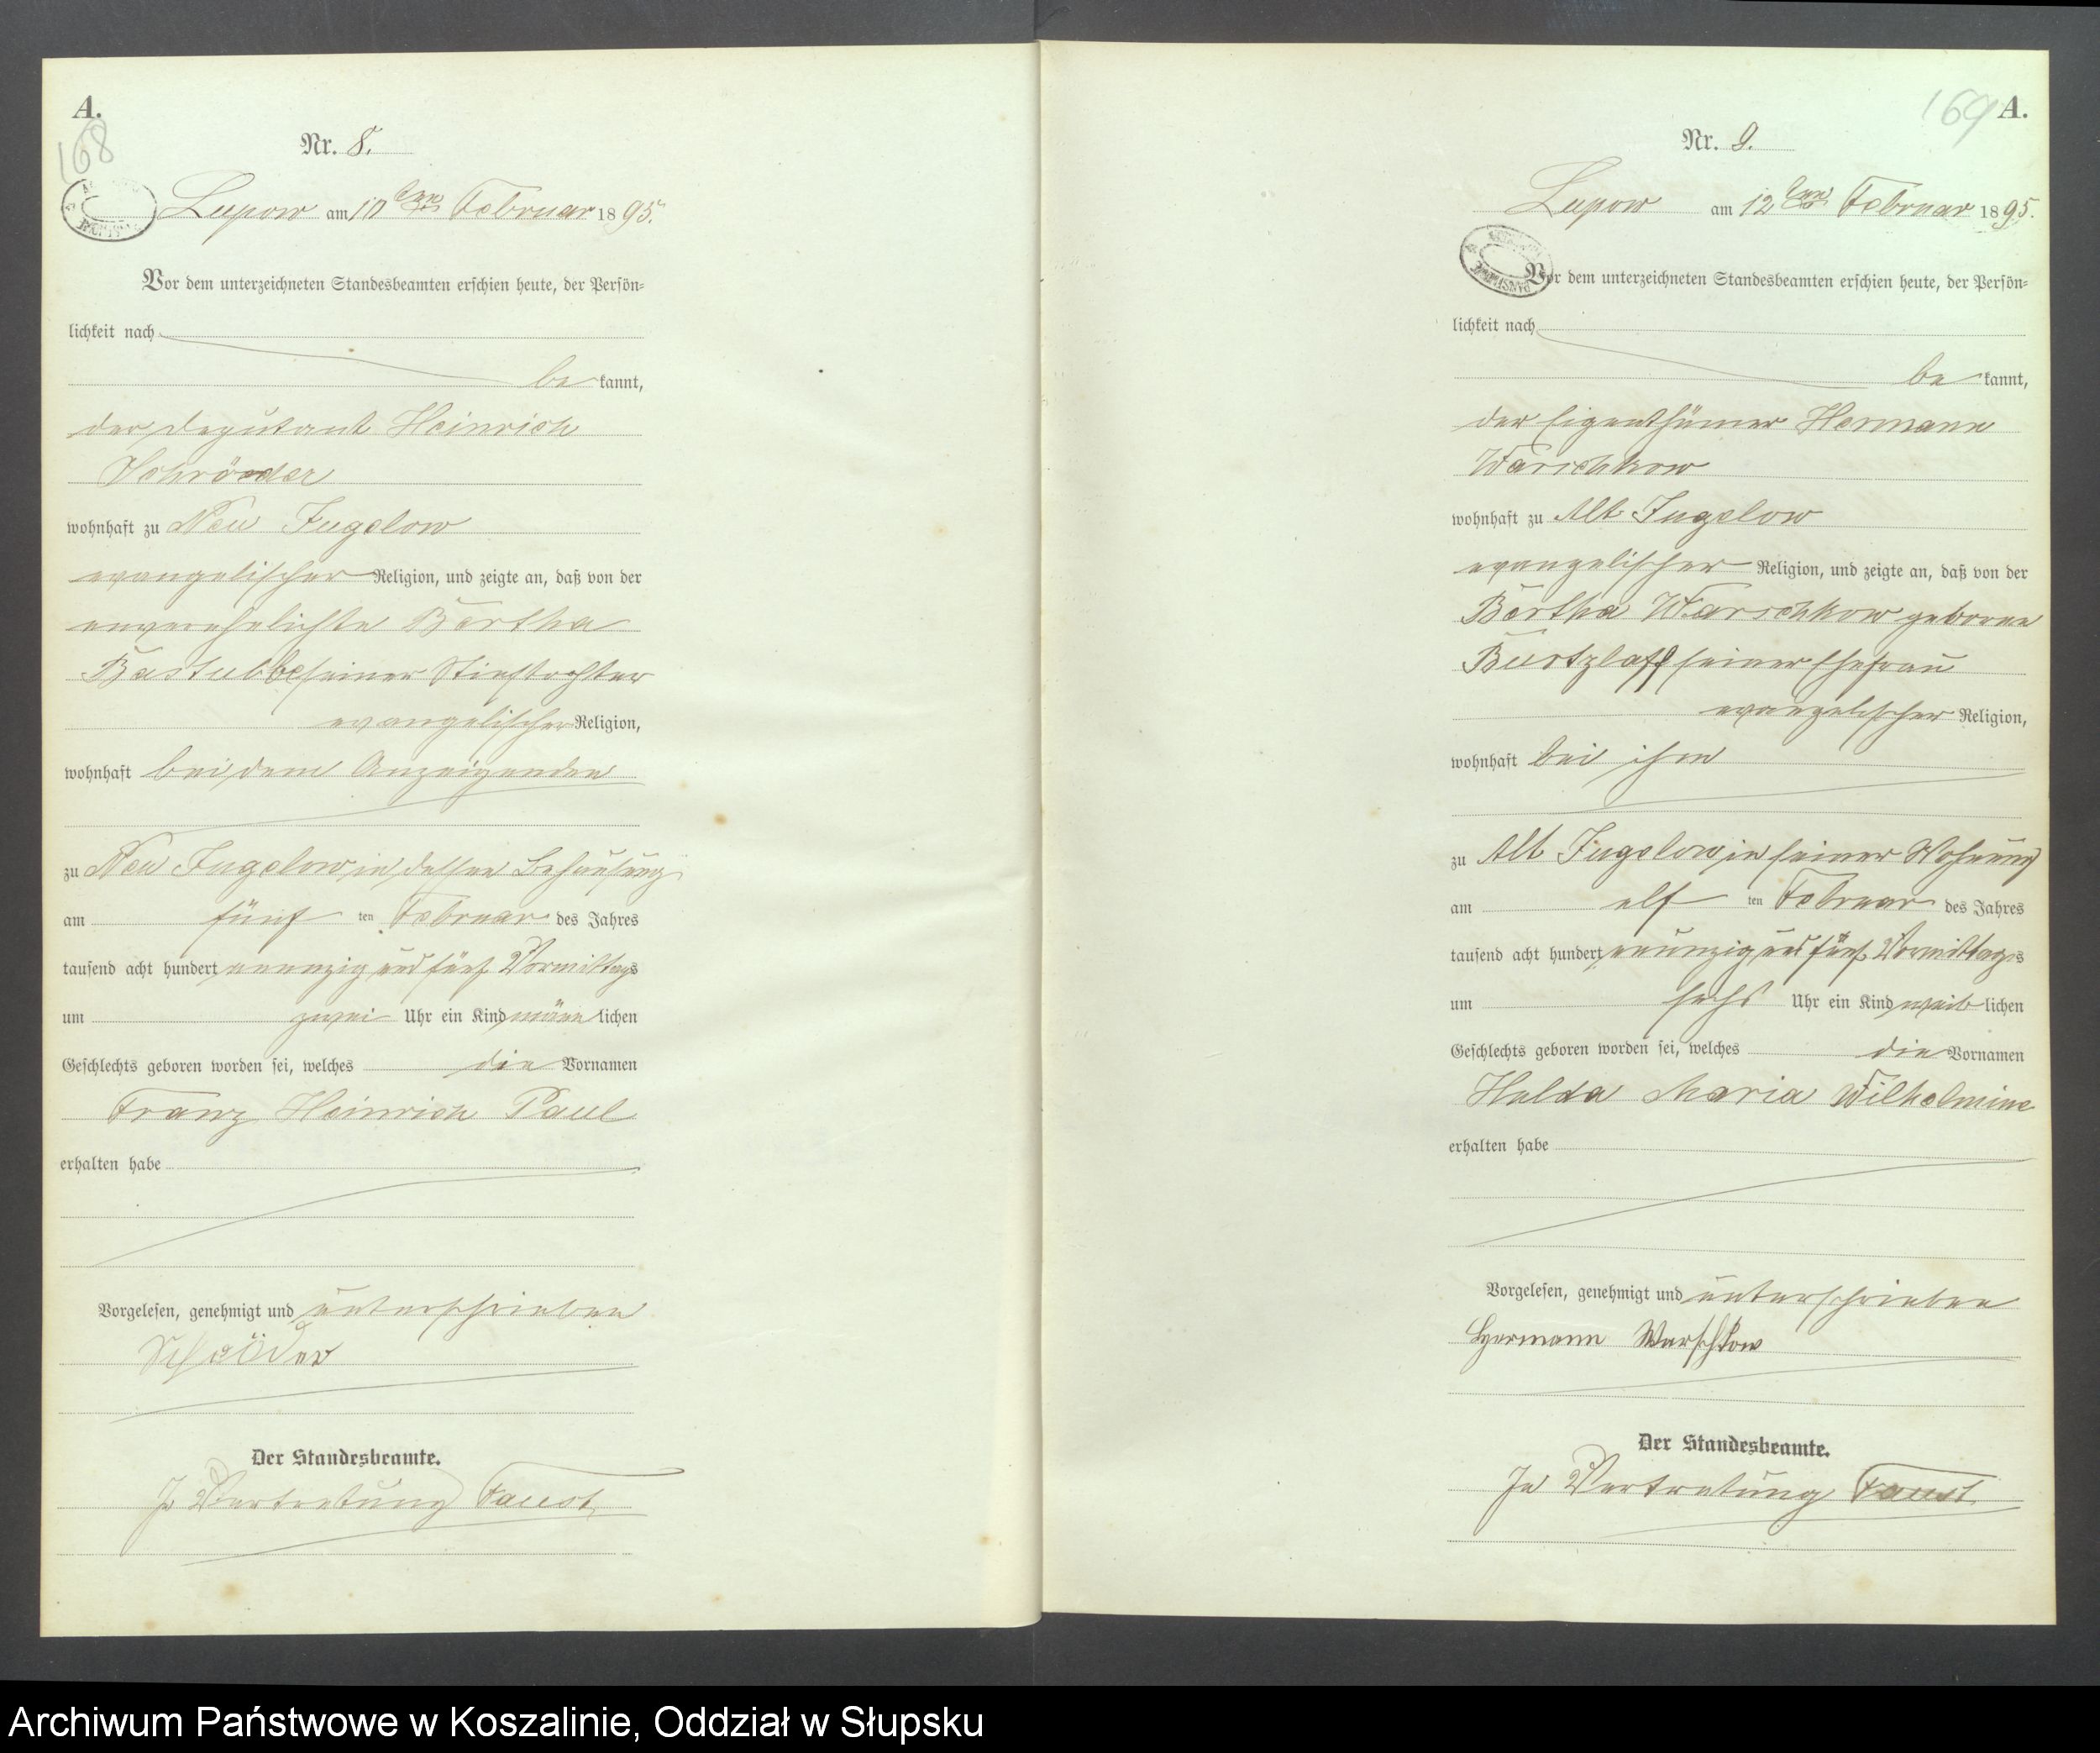 A.
168
Nr. 8.
Lupow am 10ten Februar 1895.
Vor dem unterzeichneten Standesbeamten erschien heute, der Persön-
lichkeit nach
be kannt,
der Deputant Heinrich
Schröder
wohnhaft zu Neu Jugelow
evangelischer Religion, und zeigte an, daß von der
unverehelichte Bertha
seiner Stieftochter
evangelischer Religion,
wohnhaft bei dem Anzeigenden
zu Neu Jugelow in dessen Behausung
am fünf ten Februar des Jahres
tausend acht hundert neunzig und fünf Vormittags
um zwei Uhr ein Kind männ lichen
Geschlechts geboren worden sei, welches die Vornamen
Franz Heinrich Paul
erhalten habe
Vorgelesen, genehmigt und unterschrieben
Schröder
Der Standesbeamte.
In Vertretung Faust
169
A.
Nr. 9.
Lupow am 12ten Februar 1895.
Vor dem unterzeichneten Standesbeamten erschien heute, der Persön-
lichkeit nach
be kannt,
der Eigenthümer Hermann
Warschkow
wohnhaft zu Alt Jugelow
evangelischer Religion, und zeigte an, daß von der
Bertha Warschkow geborene
Bustzlaff seiner Ehefrau
evangelischer Religion,
wohnhaft bei ihm
zu Alt Jugelow in seiner Wohnung
am elf ten Februar des Jahres
tausend acht hundert neunzig und fünf Vormittags
um sechs Uhr ein Kind weib lichen
Geschlechts geboren worden sei, welches die Vornamen
Hulda Maria Wilhelmine
erhalten habe
Vorgelesen, genehmigt und unterschrieben
Hermann Warschkow
Der Standesbeamte.
In Vertretung Faust
Archiwum Państwowe w Koszalinie, Oddział w Słupsku